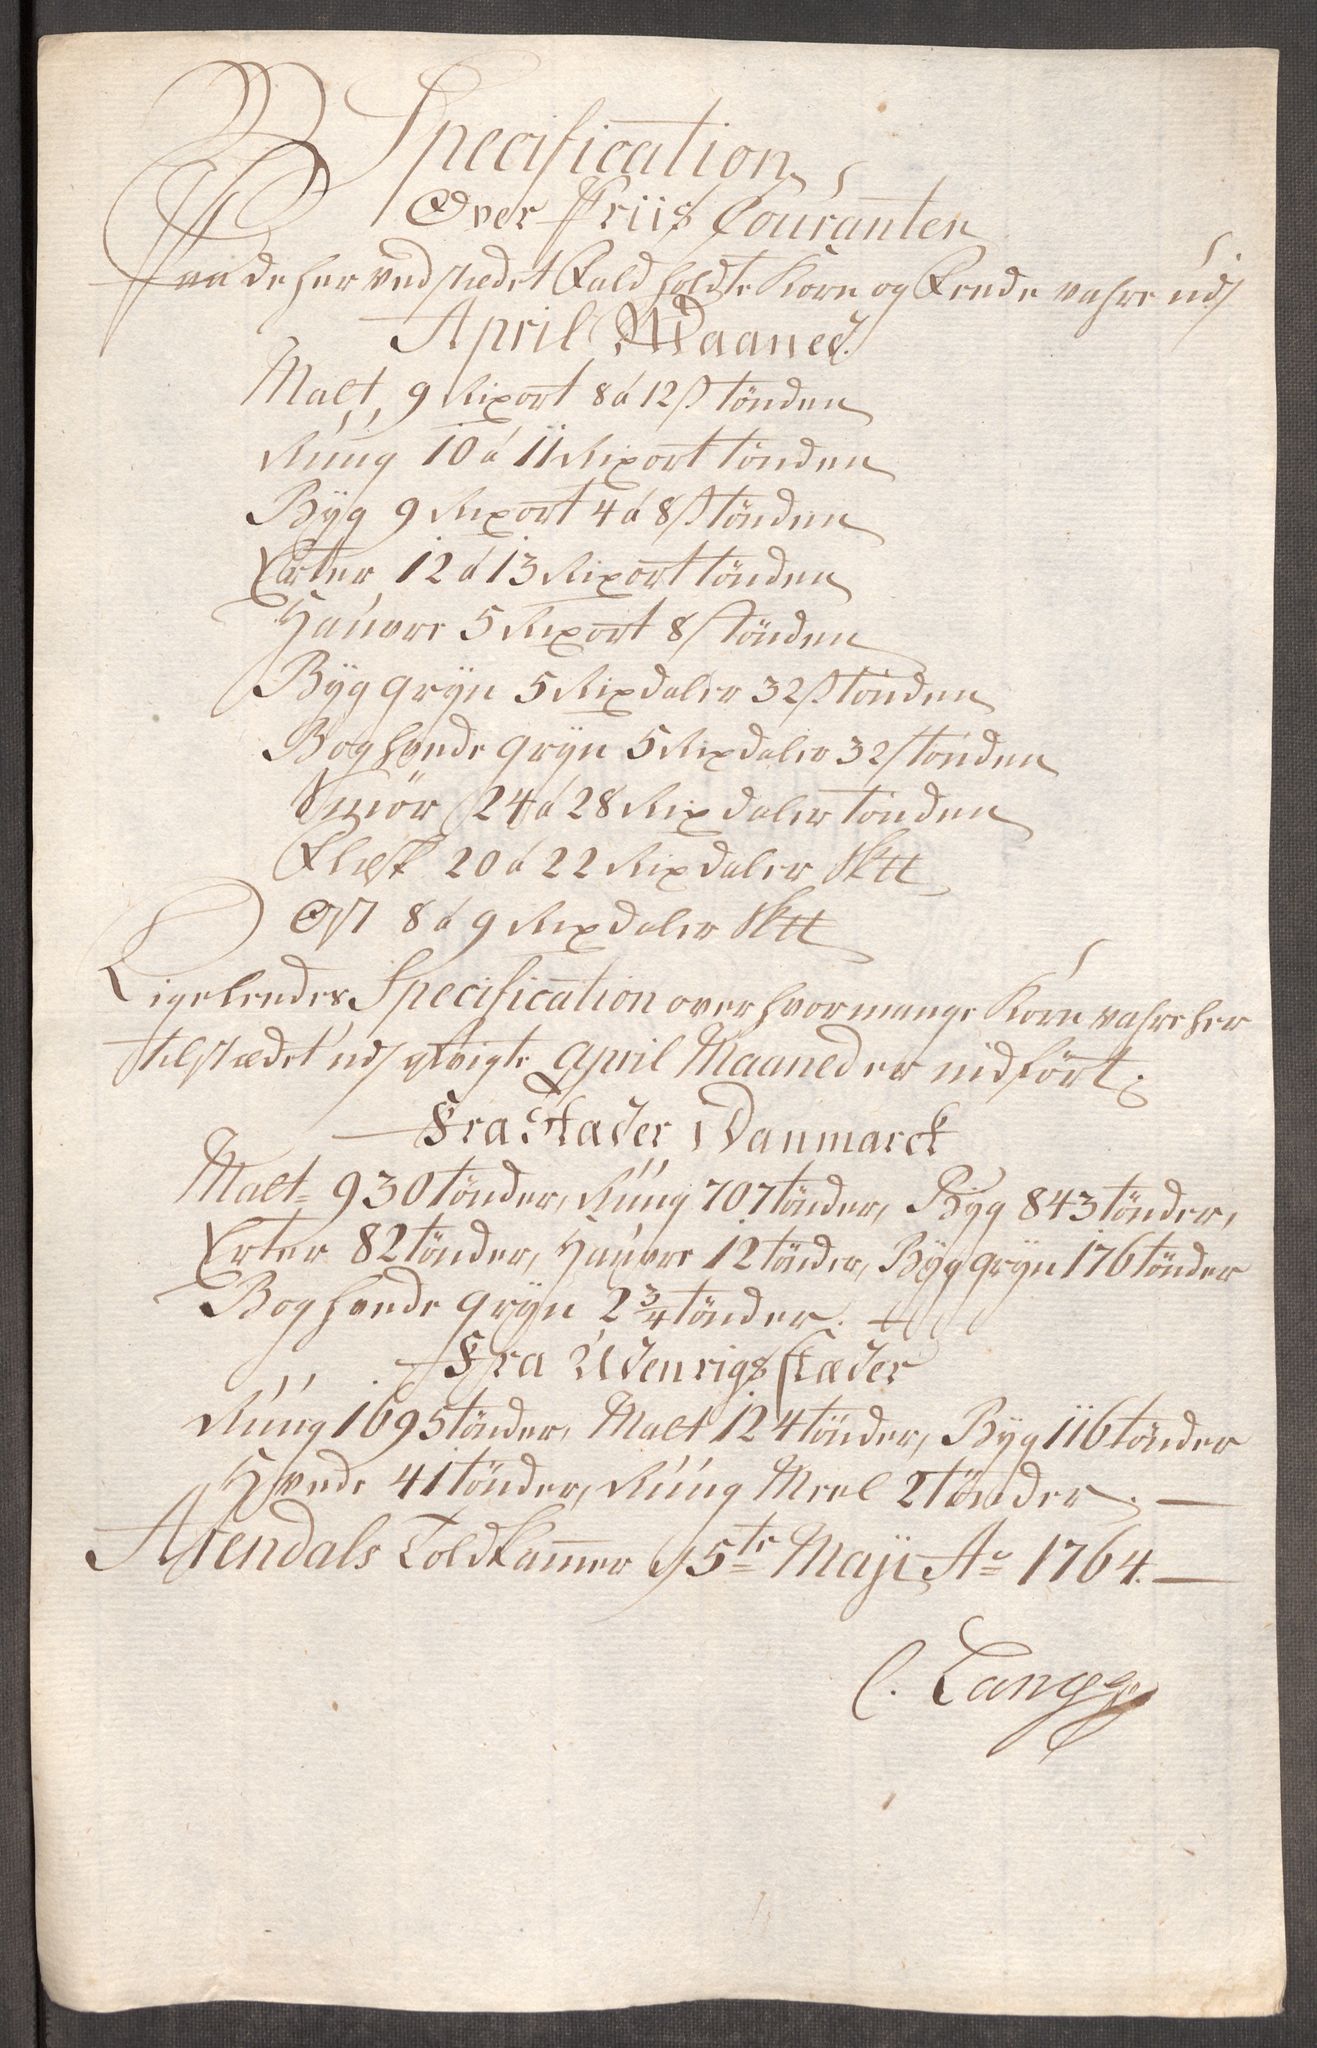 Specification
Over Priis Couranten
Paa de her ved stædet Faldholdte Korn og Fende vahre udj
April Maaned.
Malt 9 Rixort 8 á 12 s tönden
Rúúg 10 á 11 Rixort tönden
Byg 9 Rixort 4 á 8 s tönden
Erter 12 á 13 Rixort tönden
Haúvre 5 Rixort 8 s tönden
Byggryn 5 Rixdaler 32 s tönden
Boghvede gryn 5 Rixdaler 32 s tönden
Smör 24 á 28 Rixdaler tönden
Flesk 20 á 22 Rixdaler Sktt
Ost 8 á 9 Rixdaler Sktt
Ligeleedes Specification over hvor mange Korn vahre her
til stædet udj april Maaned er indfört:
Fra Stæder i Danmarck
Malt 930 tönder, Rúúg 707 tönder, Byg 843 tönder,
Erter 82 tönder, Haúvre 12 tönder, Byg gryn 176 tönder
Boghvede gryn 2 3/4 tönder.
Fra Udenrigs stæder
Rúúg 1695 tönder, Malt 124 tönder, Byg 116 tönder
Hvede 41 tönder, Rúúg Meel 2 tönder. —
Arendals Toldkammer d 5te Maji Ao 1764. —
C. Lange